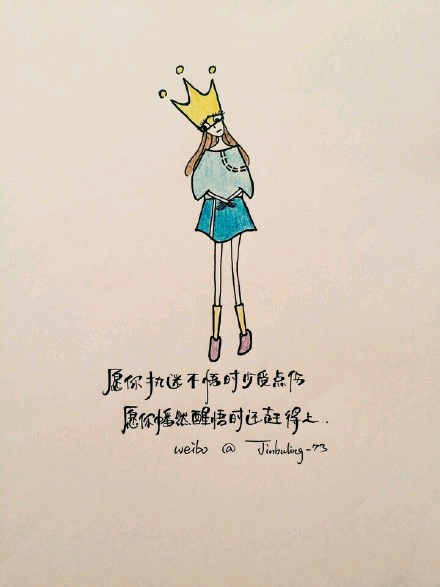 愿你执迷不悟时少受点伤
愿你幡然醒悟时还赶得上.
weibo @ Jinbuling-73